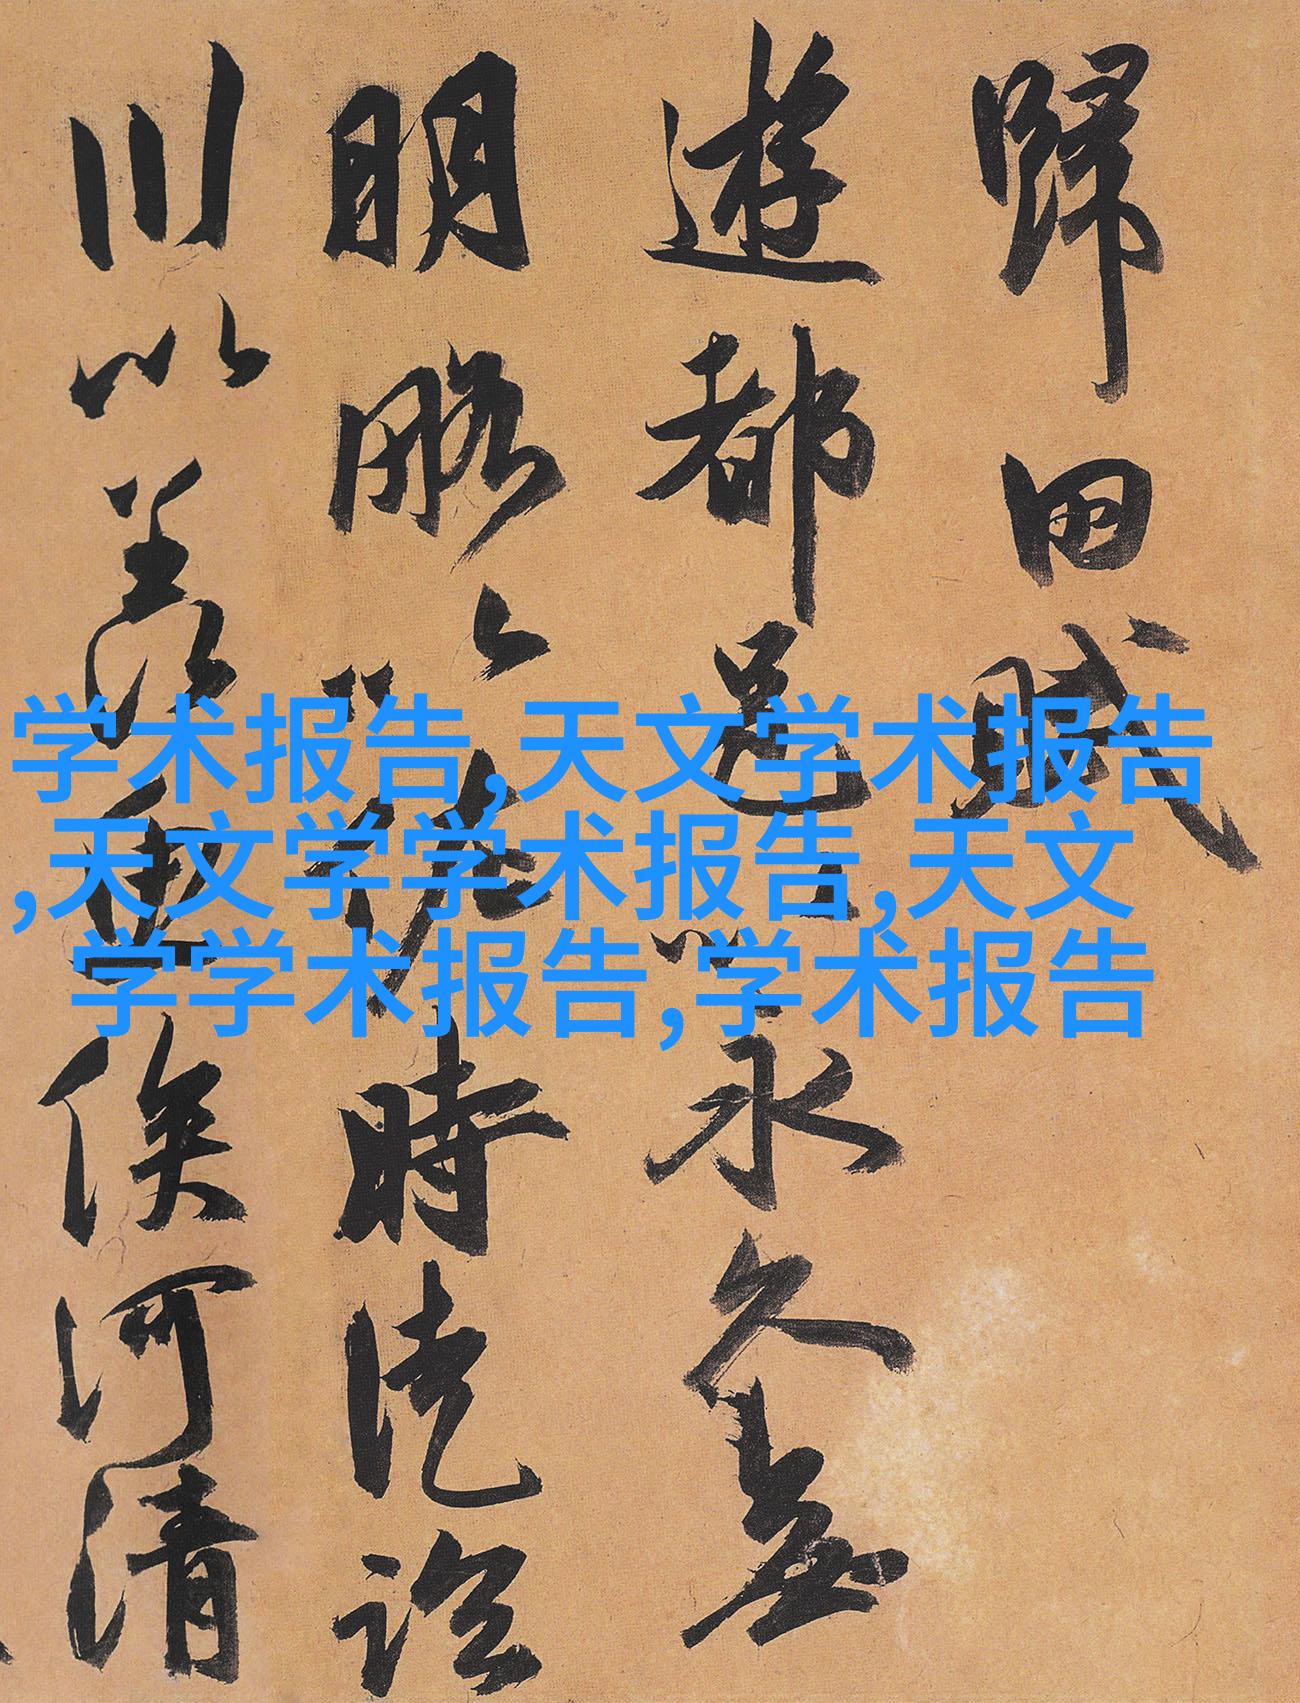 歸田賦
遊都邑以永久無
明略以佐時徒臨
川以羡魚俟河清
学术报告,天文学术报告
,天文学学术报告,天文
学学术报告,学术报告